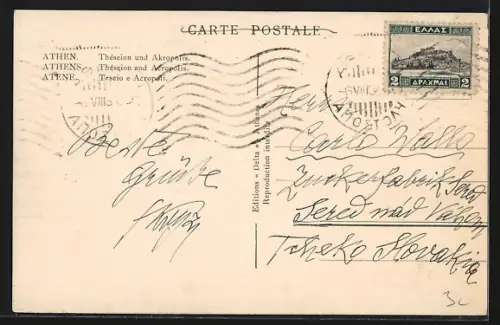 CARTE POSTALE
ATHEN. Théseion und Akropolis.
ATHENS. Théseion and Acropolis.
ATENE. Teseio e Acropoli.
ΕΛΛΑΣ
2 ΔΡΑΧΜΑΙ 2
VIII
ΑΠΟΣΤΟΛΗ
Beste
Grüsse
Editions „Delta“ Athènes
Reproduction interdite
Herrn
Carlo
Zuckerfabrik Sered
Sered nad Váhom
Tcheko Slovakia